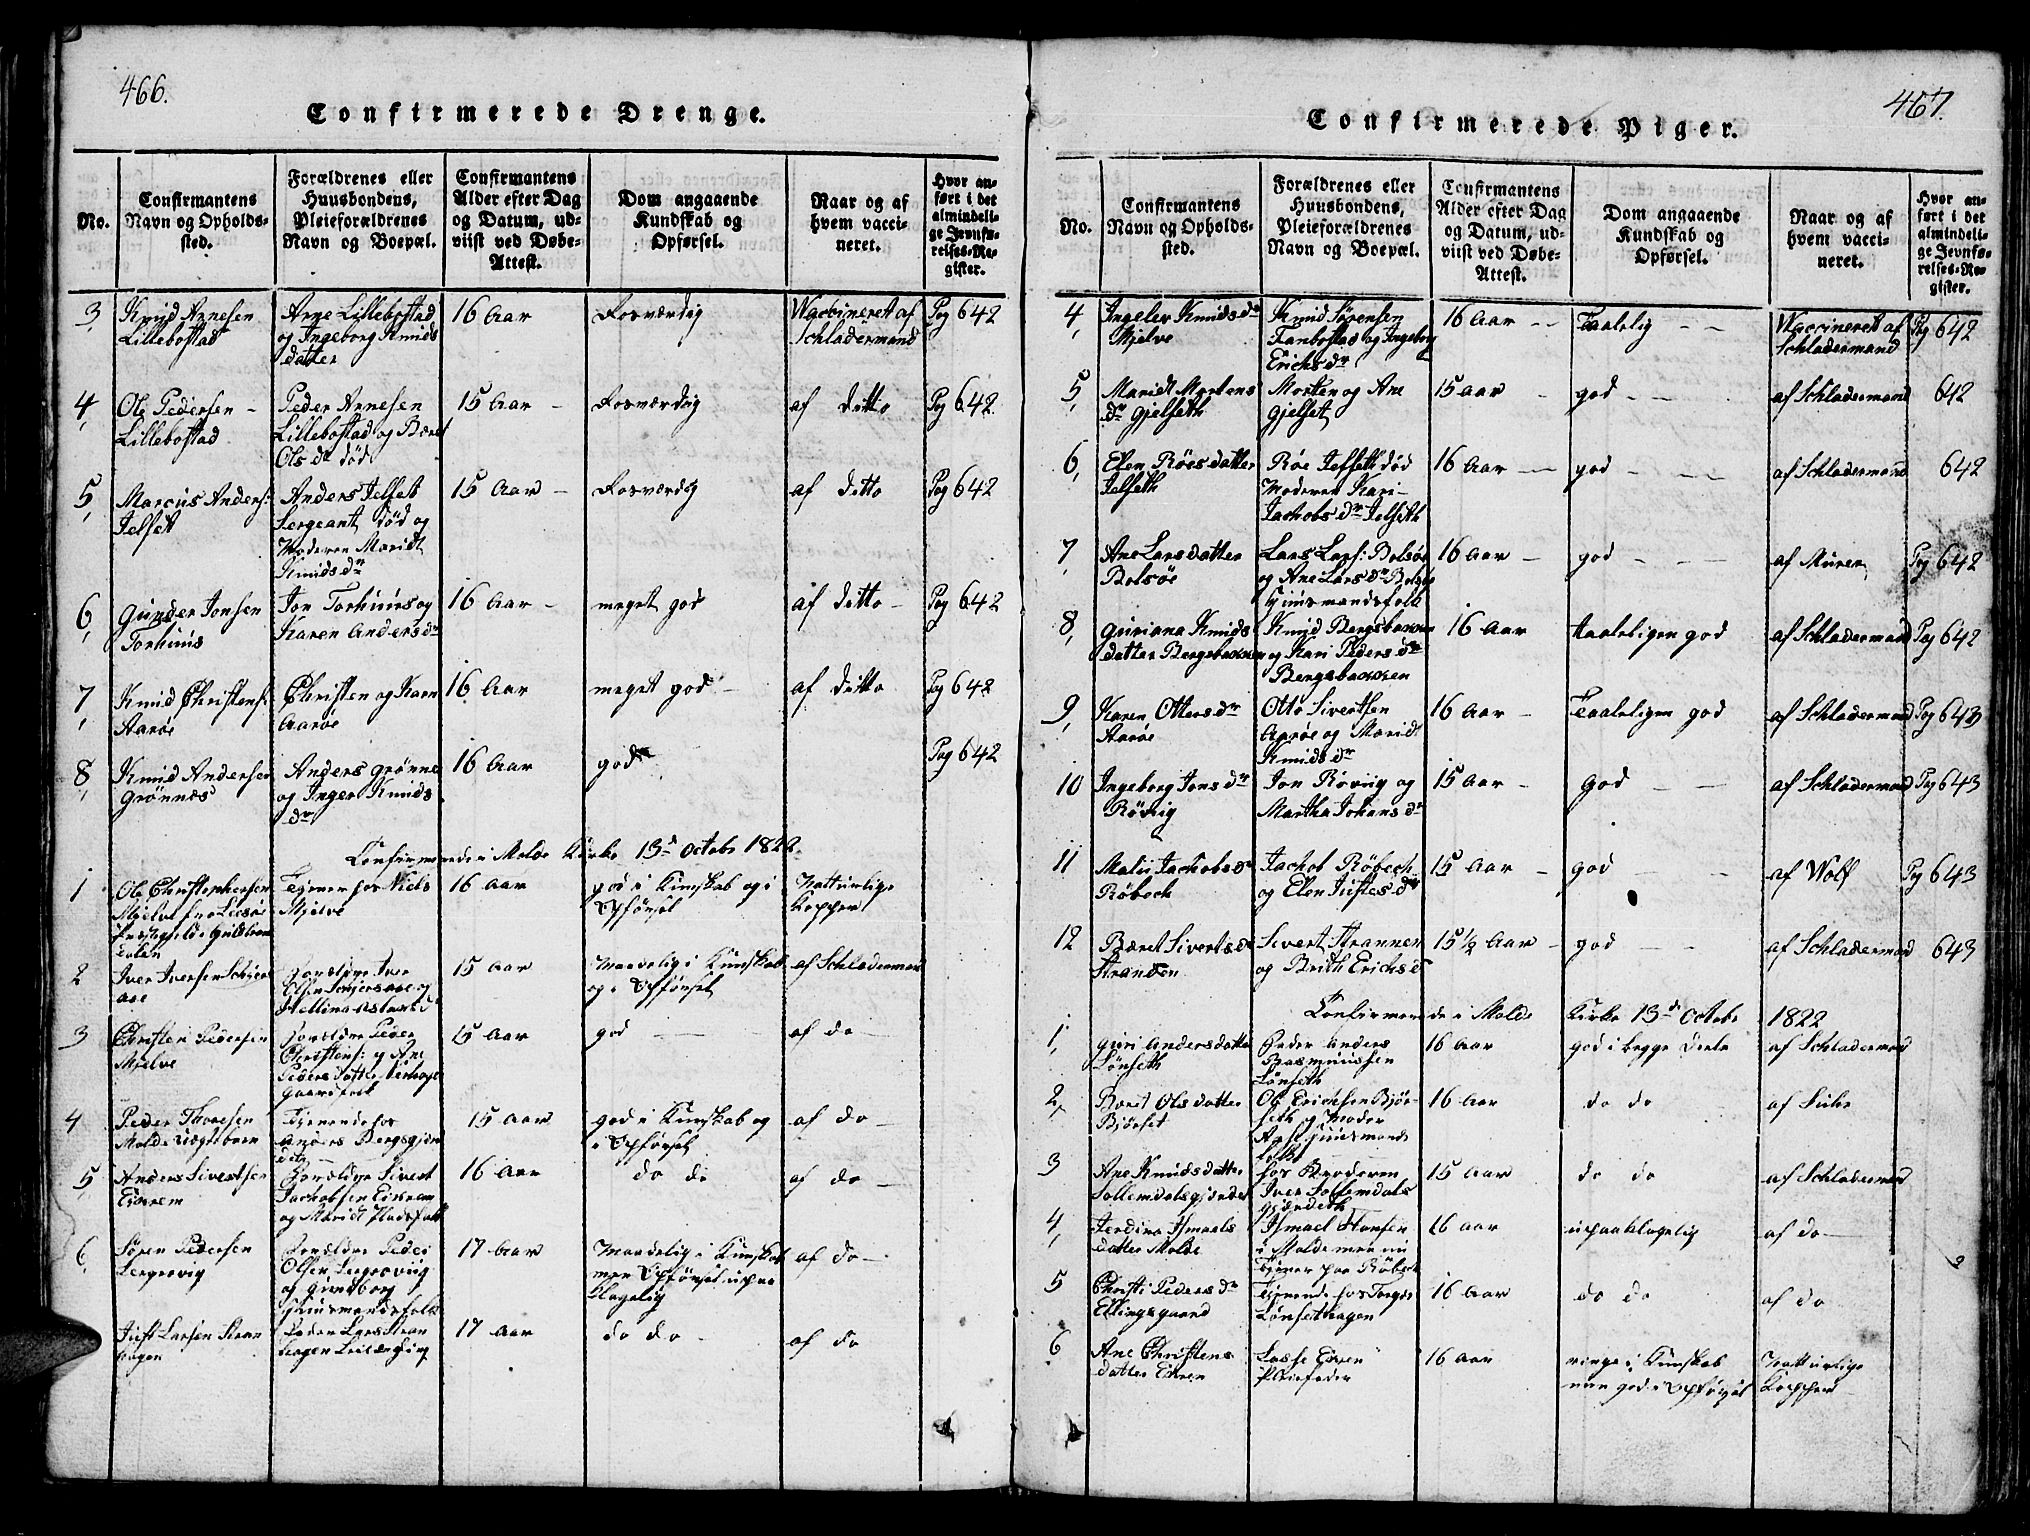 466.
Confirmerede Drenge.
No.
Confirmantens
Navn og Opholds-
sted.
Forældrenes eller
Huusbondens,
Pleieforældrenes
Navn og Boepæl.
Confirmantens
Alder efter Dag
og Datum, ud-
viist ved Døbe-
Attest.
Dom angaaende
Kundskab og
Opførsel.
Naar og af
hvem vacci-
neret.
Hvor an-
ført i det
almindeli-
ge Jevnfø-
relses-Re-
gister.
3,
Knud Arnesen
Lillebostad
Arne Lillebostad
og Ingeborg Knuds
datter
16 Aar
Forsværdig
Waccineret af
Schladermand
Pag 642
4,
Ole Pedersen -
Lillebostad
Peder Arnesen
Lillebostad og Beret
Ols dr død
15 Aar -
Forsværdig
af ditto
Pag 642
5,
Marcus Anders:
Jelset
Anders Jelset
Sergeant død og
Moderen Maridt
Knuds dr
15 Aar -
Forsværdig
af ditto
Pag 642
6,
Gunder Jonsen
Torhuus
Jon Torhuus og
Karen Anders dr
16 Aar -
meget god
af ditto -
Pag 642
7,
Knud Christens:
Aarøe
Christen og Karn
Aarøe
16 Aar
meget god -
af ditto
Pag 642
8,
Knud Andersen
Grønnæs
Anders Grønne
og Inger Knuds
dr
16 Aar
god
Pag 642
Confirmerede i Molde Kirke 13d October 1822.
1
Ole Christophersen
Mjelve
Tjener hos Niels
Mjelve
16 Aar
god i Kunskab og i
Opførsel
Natturlige
Kopper
2
Iver Iversen
aae
Forældre Iver
Olsen
15 Aar
Maadelig i Kunskab
og i Opførsel
af Schladermand
3
Christen Pedersen
Mjelve
Forældre Peder
Christens: og Ane
Peders datter
Gaardfolk
15 Aar
god
af do
4
Peder Thoresen
Molde
Tjenende hos
Anders Bergsgjær
det
15 Aar
god i Kunskab og
i Opførsel
af do -
5,
Anders Sivertsen
Eikrem
Forældre Sivert
Jachobsen Eikrem
og Maridt
16 Aar
do do
af do -
6,
Søren Pedersen
Lergrovig
Forældre Peder
Olsen Lergroviig
og Gundborg
Huusmandsfolk
17 Aar
Maadelig i Kunskab
men Opførsel upaa
klagelig
af do -
Just Larsen Stran
hagen
Faderen Lars Stran
hagen
17 Aar
do do -
af do
467.
Confirmerede Piger.
No.
Confirmantens
Navn og Opholds-
sted.
Forældrenes eller
Huusbondens,
Pleieforældrenes
Navn og Boepæl.
Confirmantens
Alder efter Dag
og Datum, ud-
viist ved Døbe-
Attest.
Dom angaaende
Kundskab og
Opførsel.
Naar og af
hvem vacci-
neret.
Hvor an-
ført i det
almindeli-
ge Jevnfø-
relses-Re-
gister.
4,
Ingelev Knuds dr
Mjelve
Knud Sørensen
Fanbostad og Ingeborg
Erichs dr
16 Aar - -
Taalelig - -
Waccineret af
Schladermand
Pag 642
5,
Maridt Mortens
dr Gjelseth
Morten og Ane
Gjelset
15 Aar -
god - -
af Schladermand
642
6,
Elen Røesdatter
Jelseth
Røe Jelseth død
Moderen Kari
Jachobs dr Jelseth
16 Aar -
god - -
af Schladermand
642
7,
Ane Larsdatter
Bolsøe
Lars Lars: Bolsøe
og Ane Lars dr Bolsøe
Huusmandsfolk
16 Aar -
god - -
af Muren
Pag 642
8,
Guriana Knuds
datter Bergsbakken
Knud Bergsbakken
og Kari Peders dr
Bergsbakken
16 Aar
taaleligen god
af Schladermand
Pag 642
9,
Karen Otters dr
Aarøe
Otto Sivertsen
Aarøe og Marid
Knuds dr
16 Aar -
Taaleligen god
af Schladermand
Pag 643
10
Ingeborg Jons dr
Røvig
Jon Røviig og
Martha Johans dr
15 Aar -
God - -
af Schladermand
Pag 643
11
Malii Jachobs dr
Røbech
Jachob Røbech
og Elen Justes dr
15 Aar -
god -
af Wolf
Pag 643
12
Beret Siverts dr
Stranden
Sivert Strannen
og Brith Erichs dr
15½ Aar -
god - -
af Schladermand
643
Confirmerede i Molde Kirke 13d October 1822
1,
Guri Andersdatter
Lønseth
Fader Anders
Rasmussen
Lønseth
16 Aar
god i begge Deele
af Schladermand
2,
Beret Olsdatter
Bjørset
Ole Erichsen Bjør
seth og Moder
Huusmands
folk
16 Aar
do do
af
3
Ane Knudsdatter
hos Broderen
Iver
15 Aar
do do
af Schladermand
4,
Ismaels
datter Molde
Ismael Hansen
i Molde men nu
Tjener paa Røbech
16 Aar
upaaklagelig
af do -
5
Christi Peders dr
Ellingsgaard
Tjenende hos
Lønsethagen
16 Aar
do do
af do
6
Ane Christens
datter Ekren
Lasse Ekren
Pleiefader
16 Aar
ringe i Kunskab
men god i Opførsel
Natturlige
Kopper